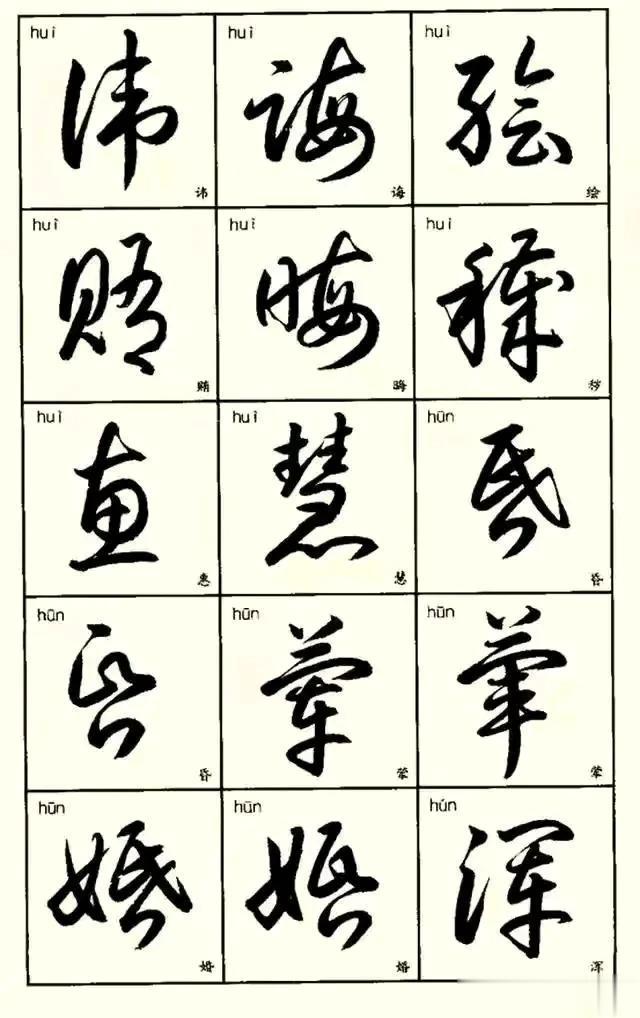 huì huì huì
讳 诲 绘
讳 诲 绘
huì huì huì
贿 晦 秽
贿 晦 秽
huì huì hūn
惠 慧 昏
惠 慧 昏
hūn hūn hūn
昏 荤 荤
昏 荤 荤
hūn hūn hún
婚 婚 浑
婚 婚 浑